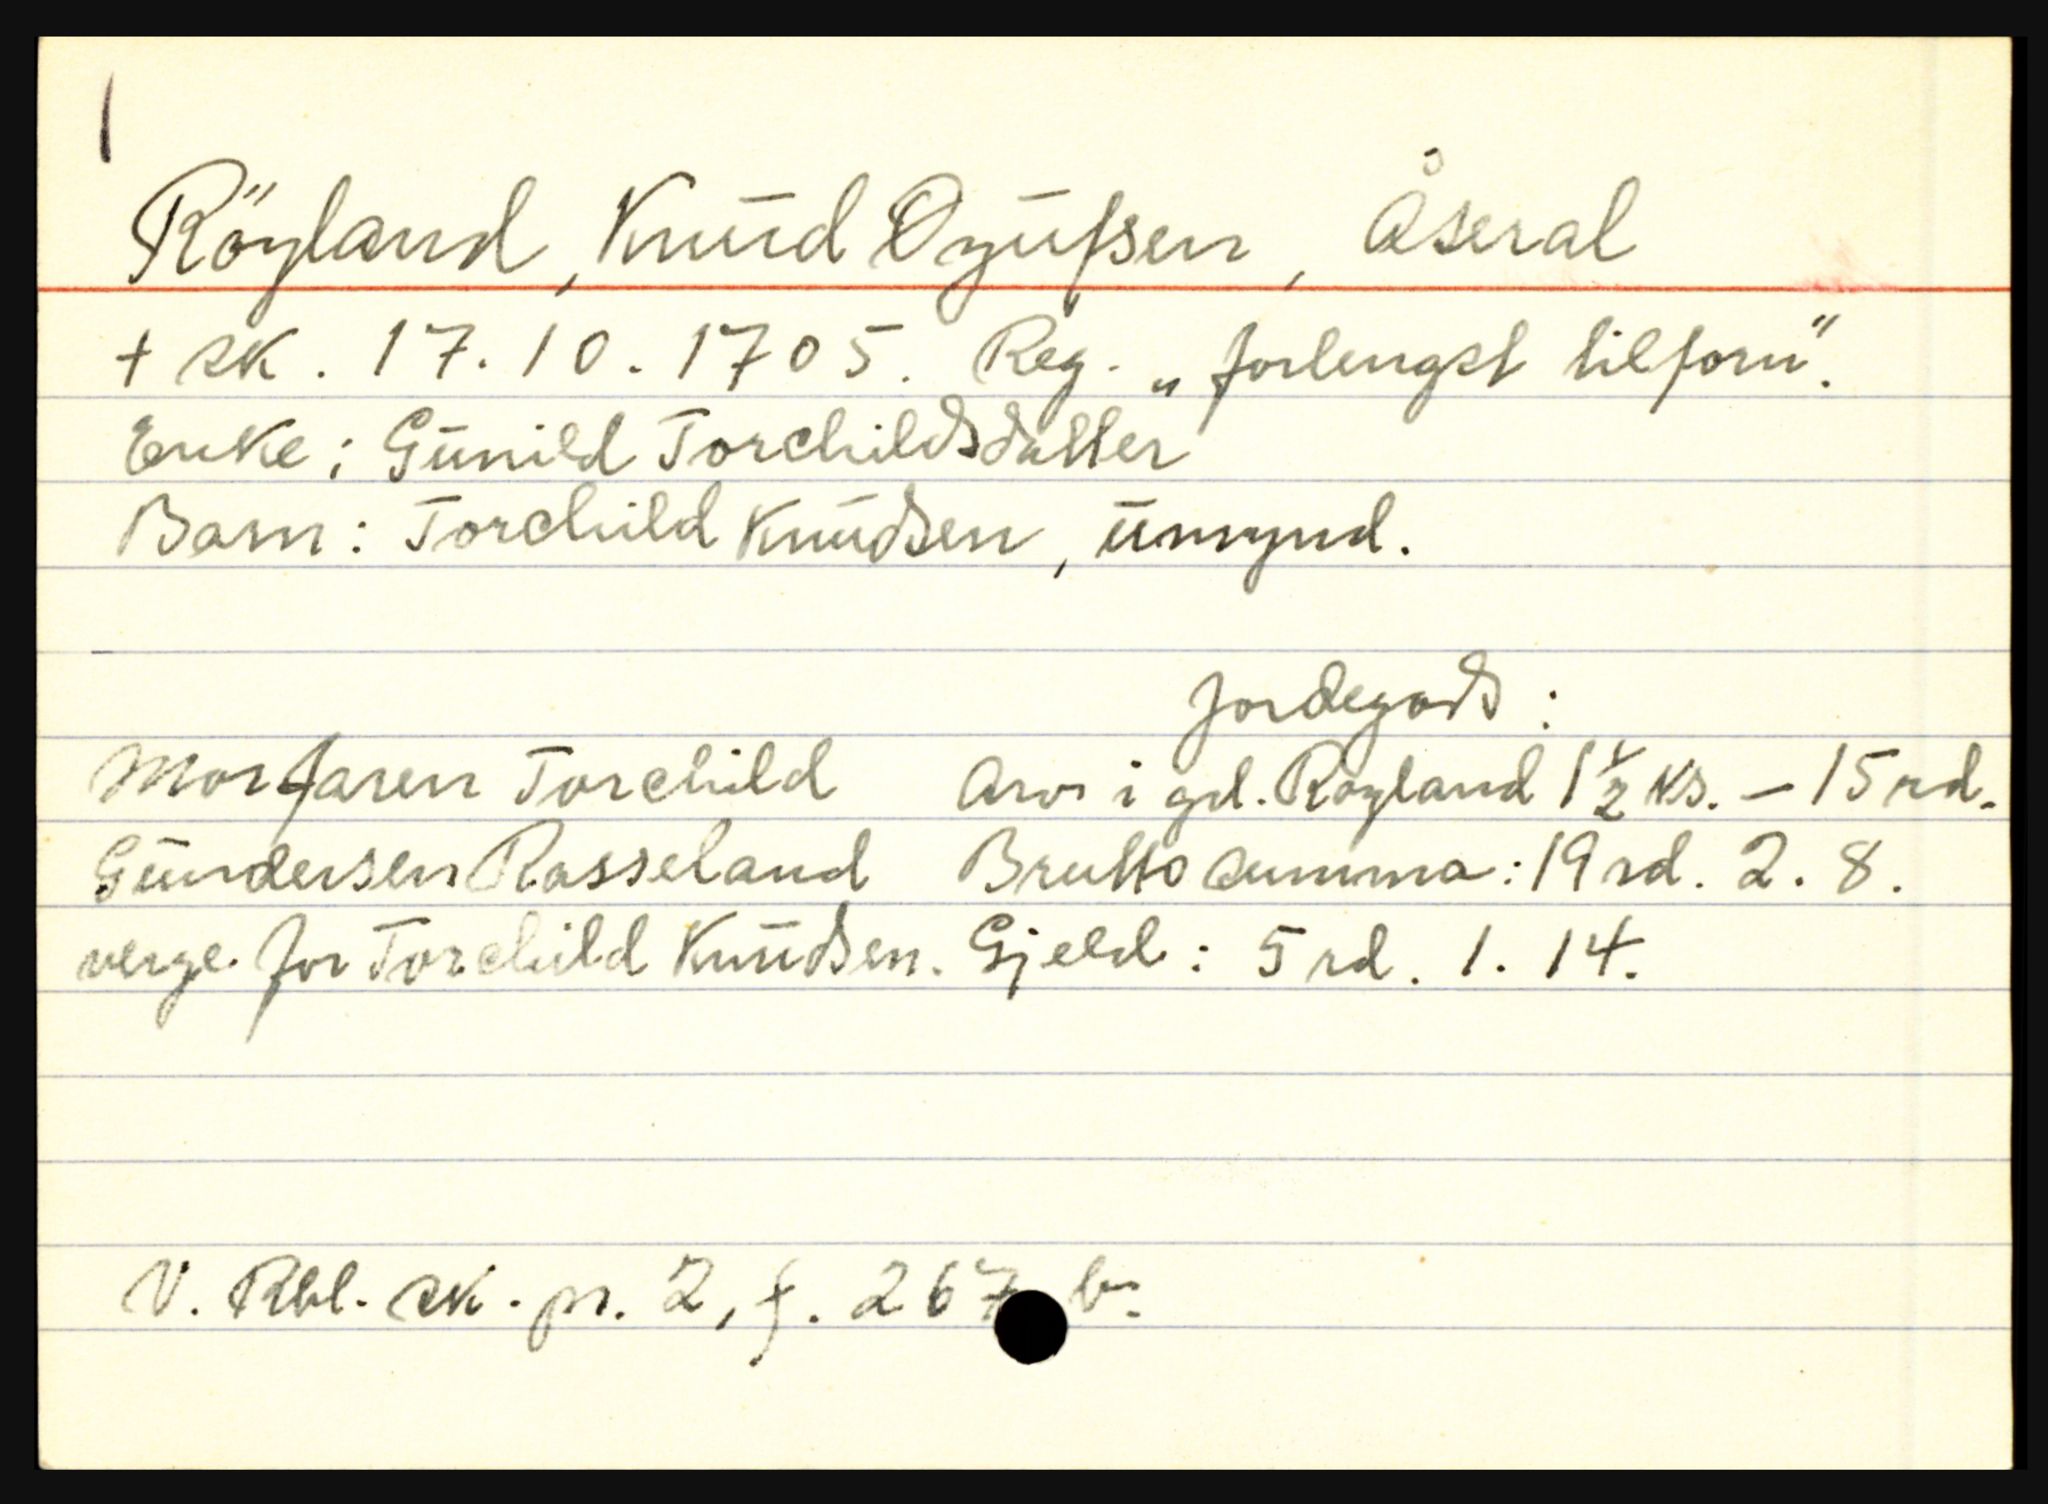 1
Röyland, Knud Ozufsen, Åseral
+ sk. 17.10.1705. Reg. „forlengst tilforn".
Enke: Gunild Torchildsdatter
Barn: Torchild Knudsen, umynd.
Jordegods:
Morfaren Torchild Arv i gd. Royland 1½ ks. – 15 rd.
Gundersen Rosseland Brutto summa: 19 rd. 2. 8.
verge for Torchild Knudsen. Gjeld: 5 rd. 1. 14.
V. Rbl. sk. pr. 2, f. 267 b.